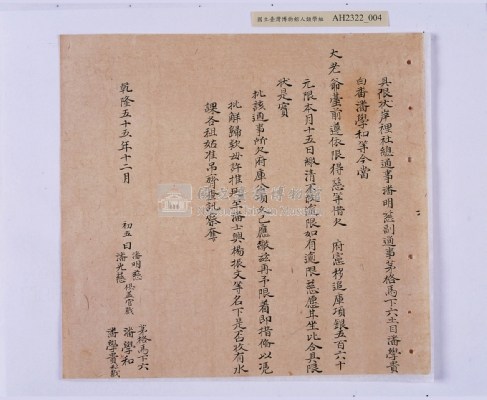 國立臺灣博物館人類學組 AH2322_004
具限狀岸裡社總通事潘明慈副通事茅格馬下六土目潘學貴
白番潘學和等今當
大老爺臺前遵依限得慈等借欠 府憲 追庫項銀五百六十
元限本月十五日繳清不敢違限如有違限慈愿甘坐比合具限
狀是實
批該通事所欠府庫公項久已應繳茲再予限着即措備以憑
批解歸款毋許推延至潘士興楊振文等名下是否收有水
課各租姑准吊簿查訊察奪
乾隆五十五年十二月 初五日 潘明慈 潘光慈
茅格馬下六
潘學和
潘學貴